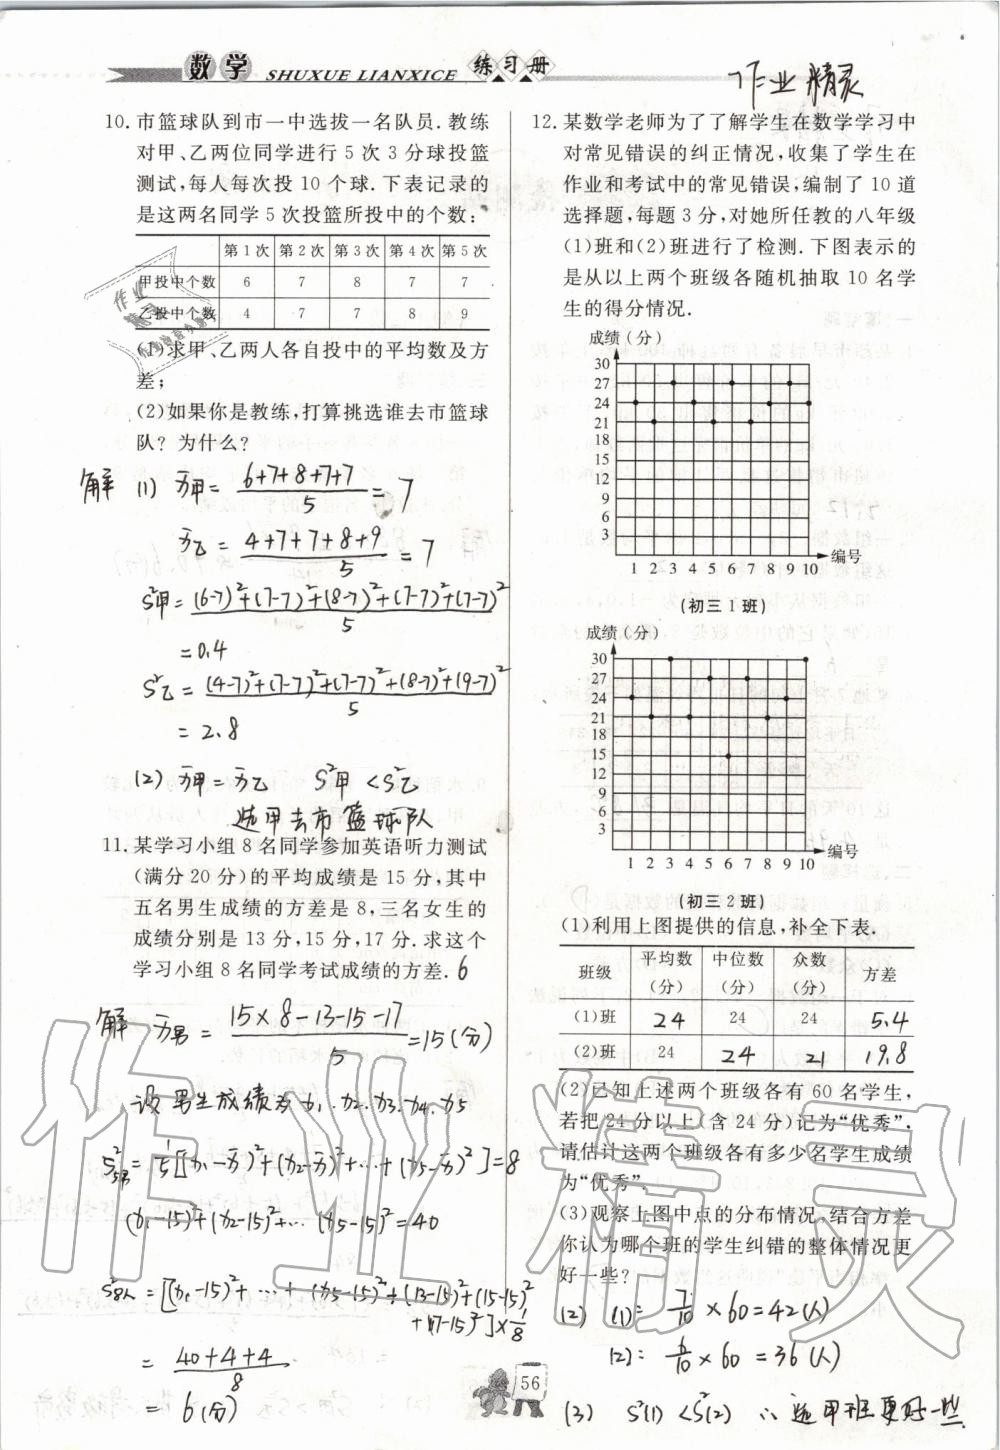 数学
SHUXUE LIANXICE
练习册
作业精灵
10. 市篮球队到市一中选拔一名队员. 教练
对甲、乙两位同学进行 5 次 3 分球投篮
测试, 每人每次投 10 个球. 下表记录的
是这两名同学 5 次投篮所投中的个数:
第1次 第2次 第3次 第4次 第5次
甲投中个数 6 7 8 7 7
乙投中个数 4 7 7 8 9
(1)求甲、乙两人各自投中的平均数及方
差;
(2)如果你是教练, 打算挑选谁去市篮球
队? 为什么?
解 (1) x̄甲 = (6+7+8+7+7)/5 = 7
x̄乙 = (4+7+7+8+9)/5 = 7
S²甲 = ((6-7)²+(7-7)²+(8-7)²+(7-7)²+(7-7)²)/5
=0.4
S²乙 = ((4-7)²+(7-7)²+(7-7)²+(8-7)²+(9-7)²)/5
= 2.8
(2) x̄甲 = x̄乙 S²甲 < S²乙
选甲去市篮球队
11. 某学习小组 8 名同学参加英语听力测试
(满分 20 分)的平均成绩是 15 分, 其中
五名男生成绩的方差是 8, 三名女生的
成绩分别是 13 分, 15 分, 17 分. 求这个
学习小组 8 名同学考试成绩的方差. 6
解 x̄男 = (15×8-13-15-17)/5 = 15(分)
设男生成绩为 x1. x2. x3. x4. x5
S²5男 = 1/5[(x1-x̄)²+(x2-x̄)²+...+(x5-x̄)²]=8
(x1-15)²+(x2-15)²+... (x5-15)²=40
S²8人 = [(x1-15)²+ ... + (x5-15)²+(13-15)²+(15-15)²
+(17-15)²]×1/8
= (40+4+4)/8
= 6(分)
12. 某数学老师为了了解学生在数学学习中
对常见错误的纠正情况, 收集了学生在
作业和考试中的常见错误, 编制了 10 道
选择题, 每题 3 分, 对她所任教的八年级
(1)班和(2)班进行了检测. 下图表示的
是从以上两个班级各随机抽取 10 名学
生的得分情况.
成绩(分)
30
27
24
21
18
15
12
9
6
3
1 2 3 4 5 6 7 8 9 10 编号
(初三 1 班)
成绩(分)
30
27
24
21
18
15
12
9
6
3
1 2 3 4 5 6 7 8 9 10 编号
(初三 2 班)
(1)利用上图提供的信息, 补全下表.
班级 平均数(分) 中位数(分) 众数(分) 方差
(1)班 24 24 24 5.4
(2)班 24 24 21 19.8
(2)已知上述两个班级各有 60 名学生,
若把 24 分以上(含 24 分)记为“优秀”.
请估计这两个班级各有多少名学生成绩
为“优秀”.
(3)观察上图中点的分布情况, 结合方差
你认为哪个班的学生纠错的整体情况更
好一些?
(2) (1): 7/10 × 60 = 42 (人)
(2): 6/10 × 60 = 36 (人)
(3) S²(1) < S²(2) ∴ 选甲班更好一些.
56
作业精灵